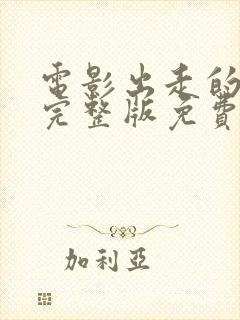 電影出走的
完整版免費
加利亞